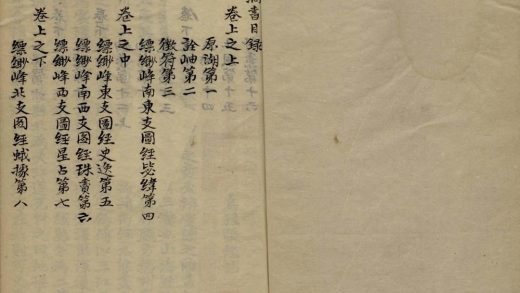 書目録
卷上之上
原湖第一
詮岫第二
徵符第三
縹緲峰南東支圖經毖緯第四
卷上之中
縹緲峰東支圖經史逸第五
縹緲峰南西支圖經珠賣第六
縹緲峰西支圖經星占第七
卷上之下
縹緲峰北支圖經蛾據第八